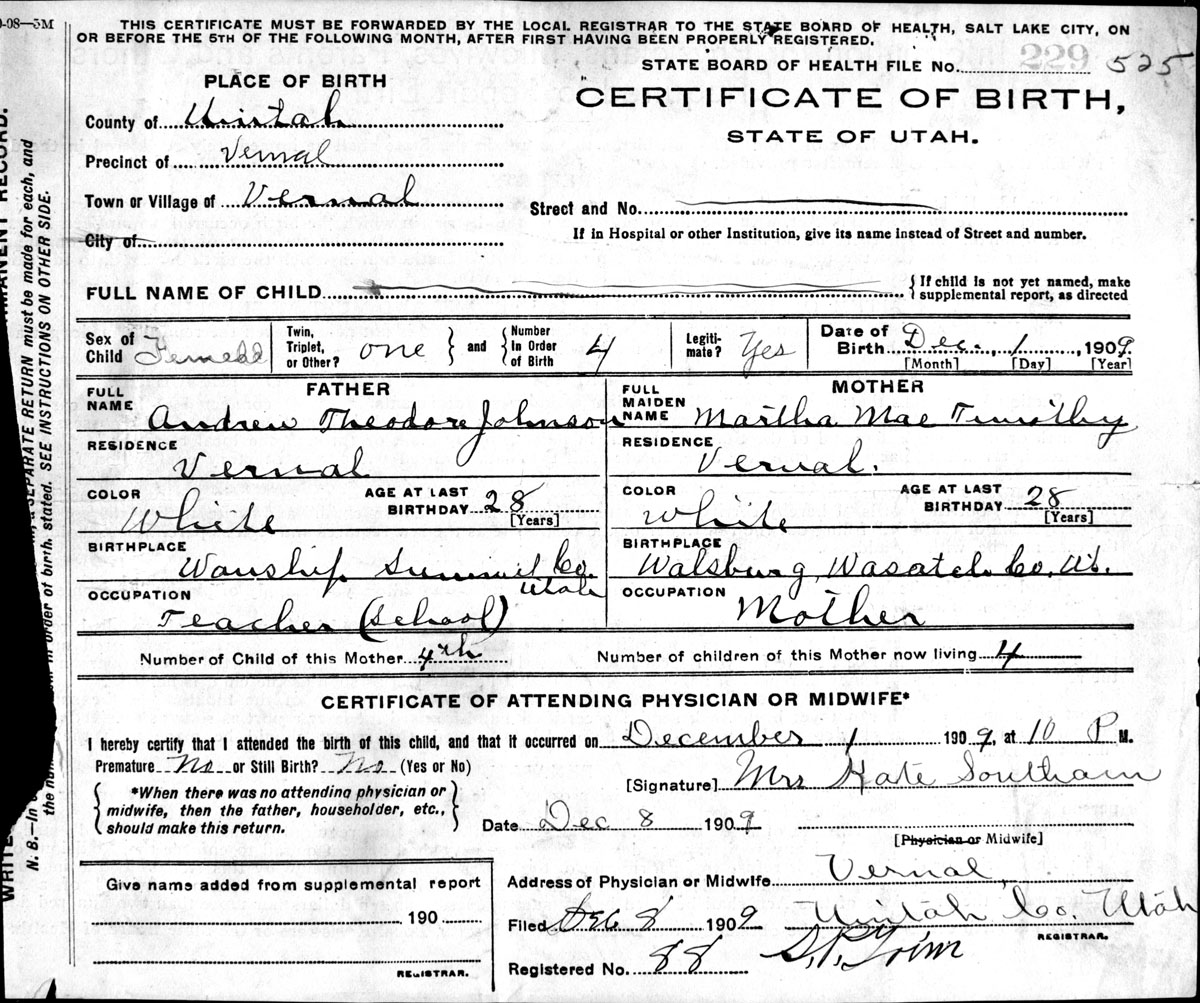 9-08—5M
THIS CERTIFICATE MUST BE FORWARDED BY THE LOCAL REGISTRAR TO THE STATE BOARD OF HEALTH, SALT LAKE CITY, ON
OR BEFORE THE 5TH OF THE FOLLOWING MONTH, AFTER FIRST HAVING BEEN PROPERLY REGISTERED.
STATE BOARD OF HEALTH FILE No. 229 525
PLACE OF BIRTH
CERTIFICATE OF BIRTH,
STATE OF UTAH.
County of Uintah
Precinct of Vernal
Town or Village of Vernal
Street and No.
City of
If in Hospital or other Institution, give its name instead of Street and number.
FULL NAME OF CHILD
If child is not yet named, make
supplemental report, as directed
Sex of Child Female
Twin, Triplet, or Other? one and Number In Order of Birth 4
Legitimate? Yes
Date of Birth Dec. 1, 1909
[Month] [Day] [Year]
FATHER
MOTHER
FULL NAME Andrew Theodore Johnson
FULL MAIDEN NAME Martha Mae Timothy
RESIDENCE Vernal
RESIDENCE Vernal.
COLOR White AGE AT LAST BIRTHDAY 28 [Years]
COLOR White AGE AT LAST BIRTHDAY 28 [Years]
BIRTHPLACE Wanship Summit Co. Utah
BIRTHPLACE Walsburg, Wasatch Co. Ut.
OCCUPATION Teacher (School)
OCCUPATION Mother
Number of Child of this Mother 4th
Number of children of this Mother now living 4
CERTIFICATE OF ATTENDING PHYSICIAN OR MIDWIFE*
I hereby certify that I attended the birth of this child, and that it occurred on December 1 1909, at 10 P M.
Premature No or Still Birth? No (Yes or No)
[Signature] Mrs Kate Southam
*When there was no attending physician or
midwife, then the father, householder, etc.,
should make this return.
Date Dec 8 1909
[Physician or Midwife]
Give name added from supplemental report
190
REGISTRAR.
Address of Physician or Midwife Vernal,
Uintah Co. Utah
Filed Dec 8 1909
REGISTRAR.
Registered No. 88
SEPARATE RETURN must be made for each, and
in order of birth, stated. SEE INSTRUCTIONS ON OTHER SIDE.
N. B.—In
the
WRITE
RECORD.